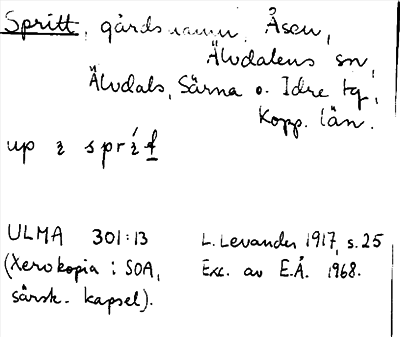 Spritt, gårdsnamn. Åsen,
Älvdalens sn,
Älvdals, Särna o. Idre tg,
Kopp. län.
up
ULMA 301:13 L. Levander 1917, s. 25
(Xerokopia i SOA, Exc. av E.Å. 1968.
särsk. kapsel).